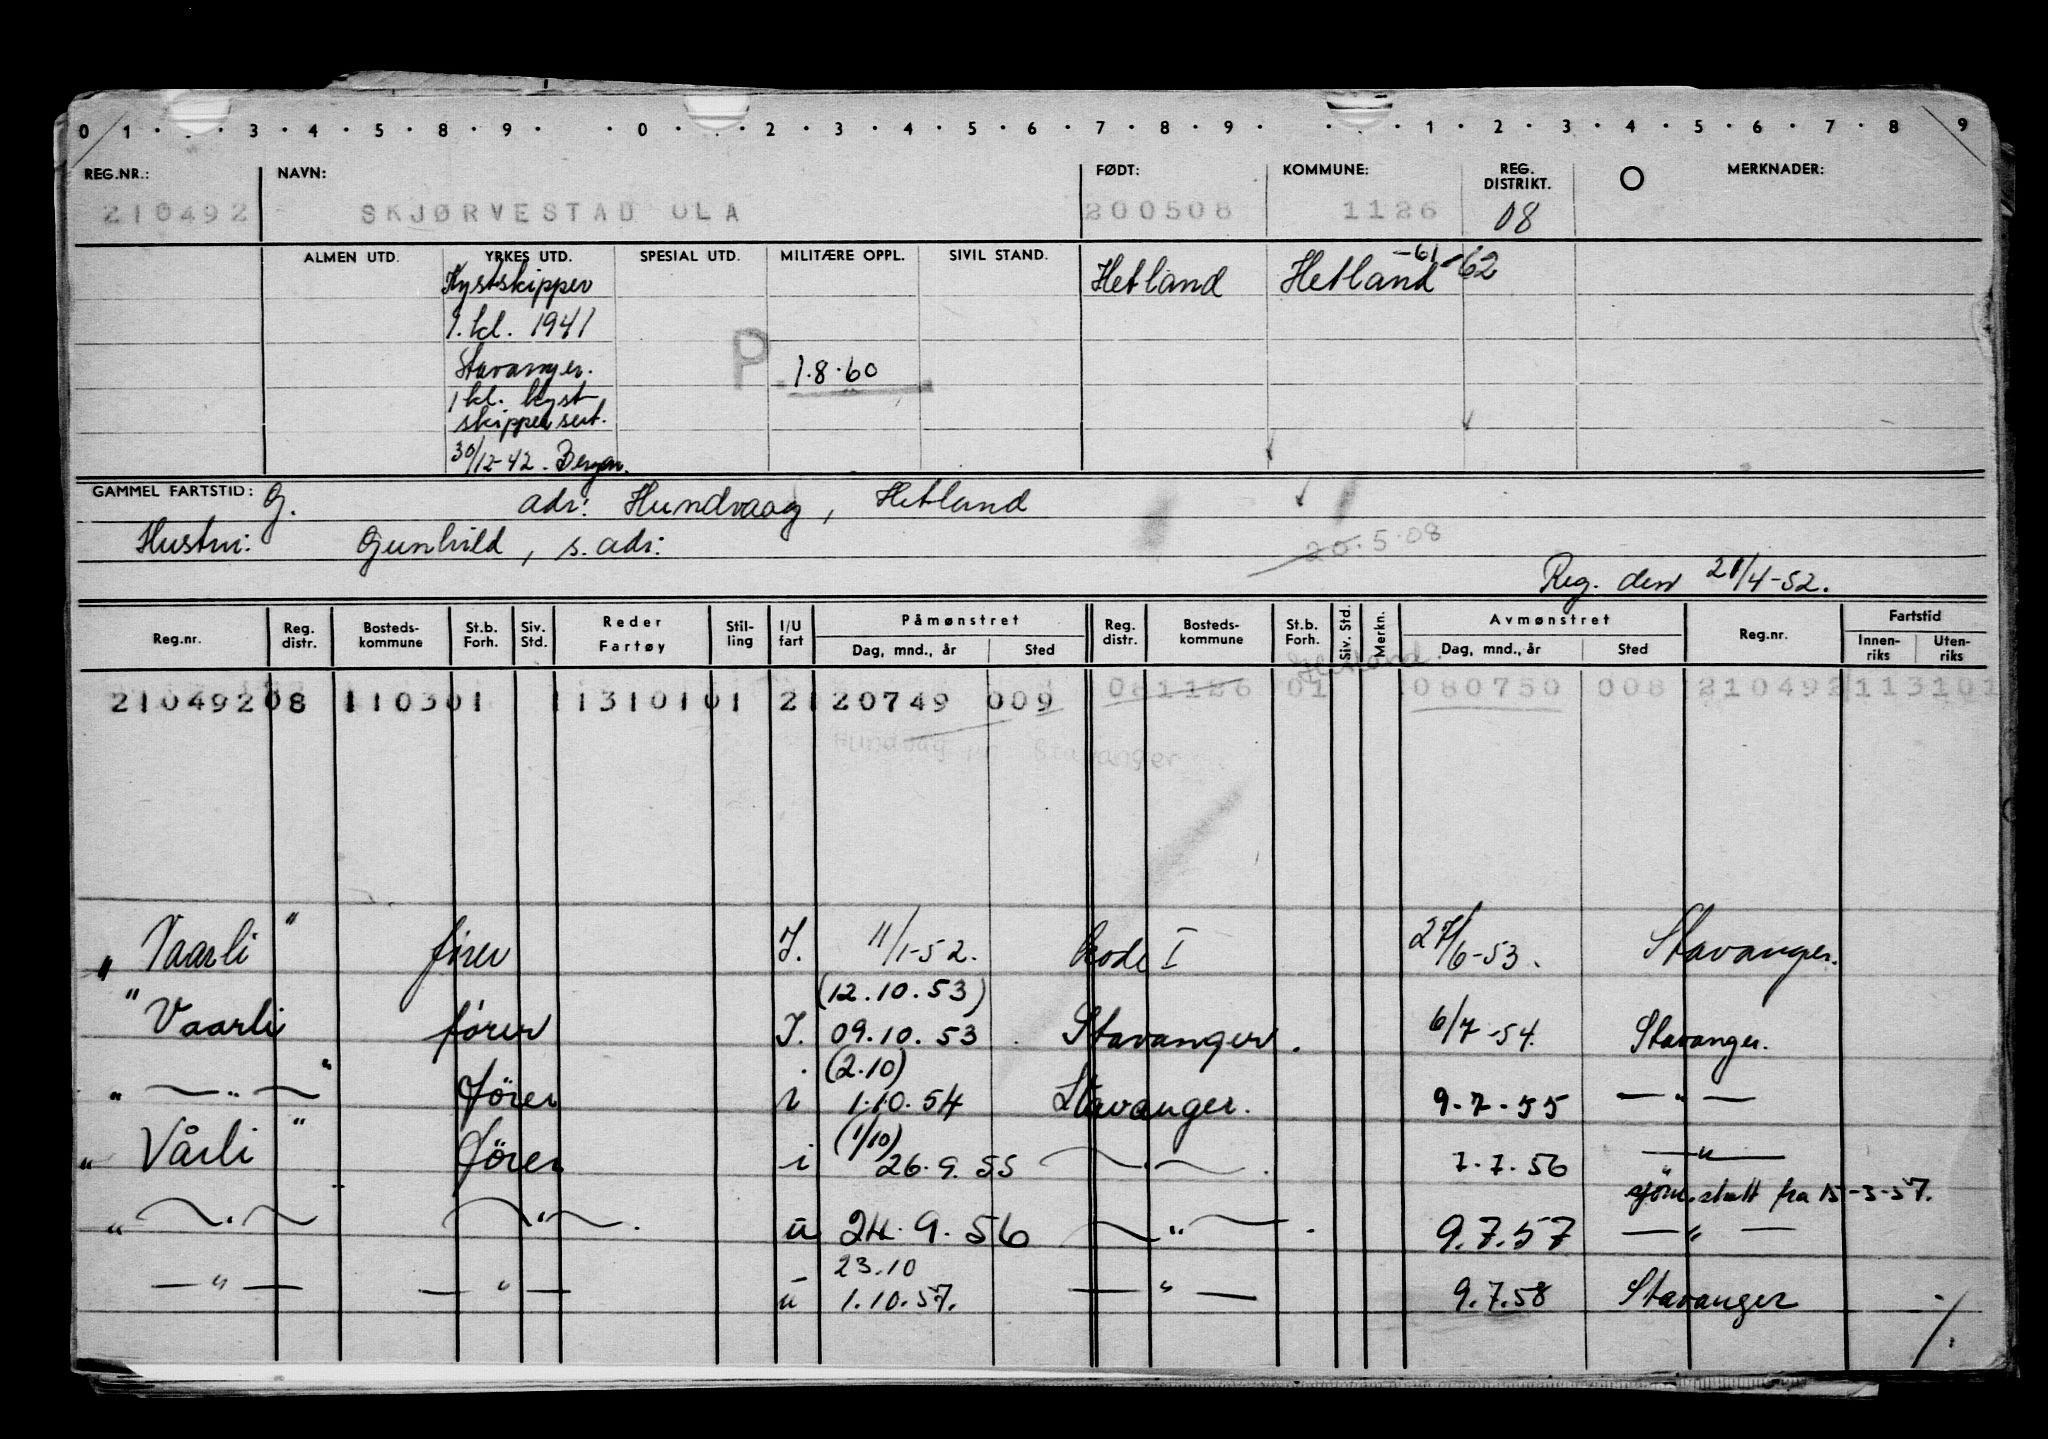 0 1 · · · 3 · 4 · 5 · 8 · 9 · · 0 · · · 2 · 3 · 4 · 5 · 6 · 7 · 8 · 9 · · · 1 · 2 · 3 · 4 · 5 · 6 · 7 · 8 9
REG.NR.: NAVN: FØDT: KOMMUNE: REG. DISTRIKT. MERKNADER:
210492 SKJØRVESTAD OLA 200508 1126 08
ALMEN UTD. YRKES UTD. SPESIAL UTD. MILITÆRE OPPL. SIVIL STAND.
Kystskipper Hetland Hetland -61 -62
1. kl. 1941
Stavanger. P. 1.8.60
1 kl. kyst-
skipper sert.
30/12-42. Bergen.
GAMMEL FARTSTID: G. adr: Hundvaag, Hetland
Hustru: Gunhild, s. adr: 20.5.08
Reg. den 21/4-52.
Reg.nr. Reg. distr. Bosteds- kommune St.b. Forh. Siv. Std. Reder Fartøy Stil- ling I/U fart Påmønstret Dag, mnd., år Sted Reg. distr. Bosteds- kommune St.b. Forh. Siv. Std. Merkn. Avmønstret Dag, mnd., år Sted Reg.nr. Fartstid Innen- riks Uten- riks
Hetland.
21049208 110301 11310101 2120749 009 081126 01 080750 008 210492113101
Hundvåg Stavanger
" Vaarli " fører I. 11/1-52. Rode I 27/6-53. Stavanger.
(12.10.53)
" Vaarli fører I. 09.10.53 Stavanger. 6/7-54. Stavanger.
(2.10)
" — " — " fører i 1.10.54 Stavanger. 9.7.55 — " —
(1/10)
" Vårli " fører i 26.9.55 — " — 7.7.56 — " —
sjöm.skatt fra 15-3-57.
" — " — — " — . u 24.9.56 — " — . 9.7.57 — " —
23.10
— " — — " — u 1.10.57. — " — 9.7.58 Stavanger